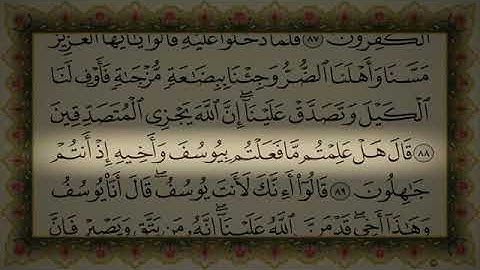 ٱلْكَٰفِرُونَ ٨٧ فَلَمَّا دَخَلُوا۟ عَلَيْهِ قَالُوا۟ يَٰٓأَيُّهَا ٱلْعَزِيزُ
مَسَّنَا وَأَهْلَنَا ٱلضُّرُّ وَجِئْنَا بِبِضَٰعَةٍ مُّزْجَىٰةٍ فَأَوْفِ لَنَا
ٱلْكَيْلَ وَتَصَدَّقْ عَلَيْنَآ إِنَّ ٱللَّهَ يَجْزِى ٱلْمُتَصَدِّقِينَ
٨٨ قَالَ هَلْ عَلِمْتُم مَّا فَعَلْتُم بِيُوسُفَ وَأَخِيهِ إِذْ أَنتُمْ
جَٰهِلُونَ ٨٩ قَالُوٓا۟ أَءِنَّكَ لَأَنتَ يُوسُفُ قَالَ أَنَا۠ يُوسُفُ
وَهَٰذَآ أَخِى قَدْ مَنَّ ٱللَّهُ عَلَيْنَآ إِنَّهُۥ مَن يَتَّقِ وَيَصْبِرْ فَإِنَّ